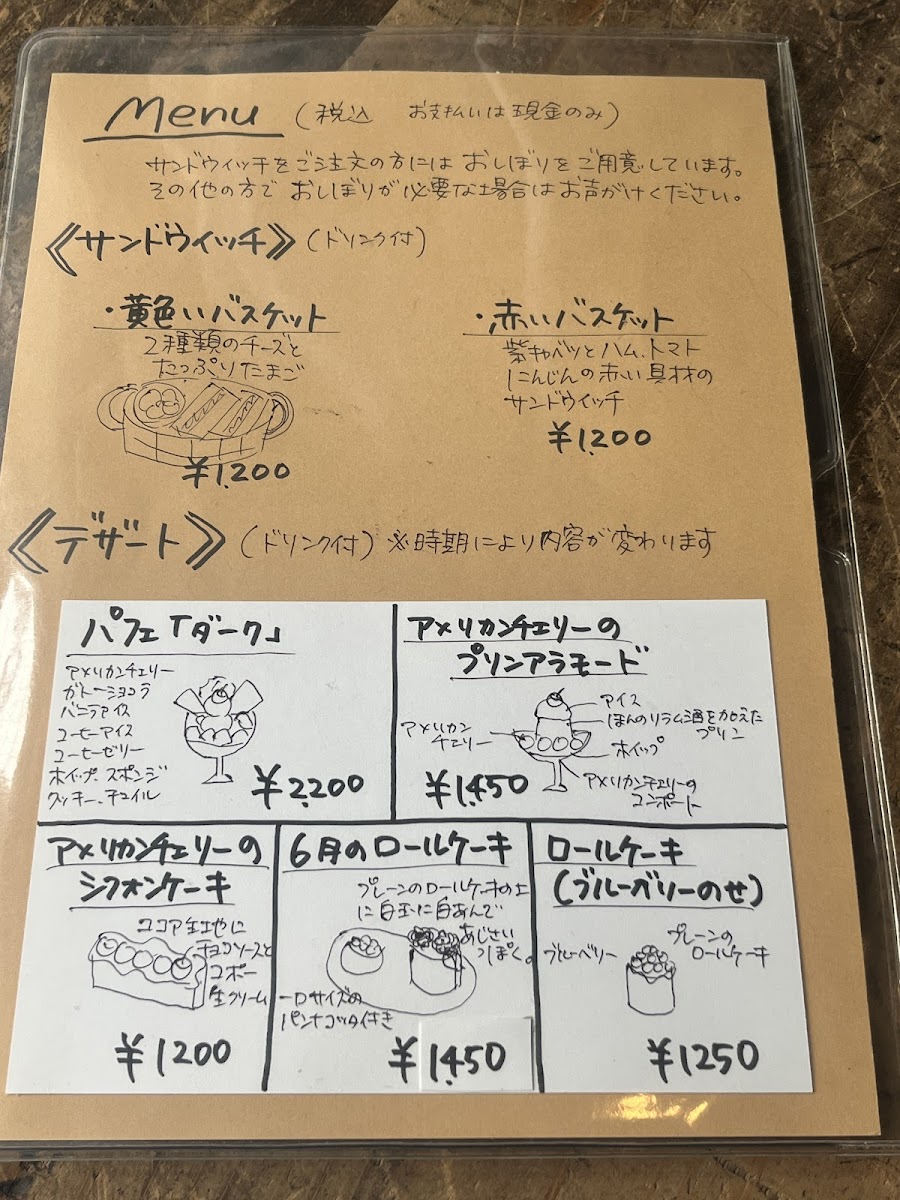 Menu (税込 お支払いは現金のみ)
サンドウィッチをご注文の方には おしぼりをご用意しています。
その他の方で おしぼりが必要な場合はお声がけください。
《サンドウィッチ》(ドリンク付)
・黄色いバスケット
2種類のチーズと
たっぷりたまご
¥1,200
・赤いバスケット
紫キャベツとハム、トマト
にんじんの赤い具材の
サンドウィッチ
¥1,200
《デザート》(ドリンク付) ※時期により内容が変わります
パフェ「ダーク」
アメリカンチェリー
ガトーショコラ
バニラアイス
コーヒーアイス
コーヒーゼリー
ホイップ、スポンジ
クッキー、チュイル
¥2,200
アメリカンチェリーの
プリンアラモード
アイス
ほんのりラム酒を加えた
プリン
アメリカン
チェリー
ホイップ
アメリカンチェリーの
コンポート
¥1,450
アメリカンチェリーの
シフォンケーキ
ココア生地に
チョコソースと
コポー
生クリーム
¥1200
6月のロールケーキ
プレーンのロールケーキの上
に白玉に白あんで
あじさい
っぽく。
一口サイズの
パンナコッタ付き
¥1,450
ロールケーキ
(ブルーベリーのせ)
ブルーベリー
プレーンの
ロールケーキ
¥1250